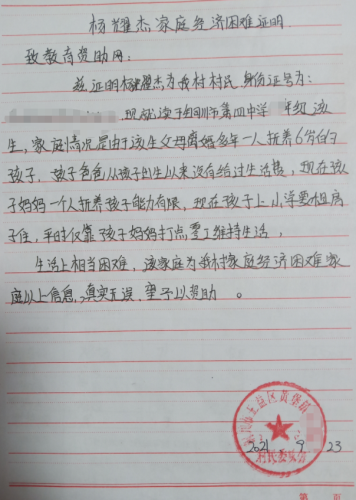 杨耀杰家庭经济困难证明
致教育资助网：
兹证明杨耀杰为我村村民,身份证号为：
现就读于 市第四中学 年级,该
生，家庭情况是由于该生父母离婚多年一人抚养6岁的
孩子，孩子爸爸从孩子出生以来没有给过生活费，现在孩
子妈妈一个人抚养孩子能力有限，现在孩子上小学要租房
子住，平时仅靠孩子妈妈打点零工维持生活，
生活上相当困难，该家庭为我村家庭经济困难家
庭以上信息，真实无误，望予以资助。
村民委员会
2021 9 23
第 页